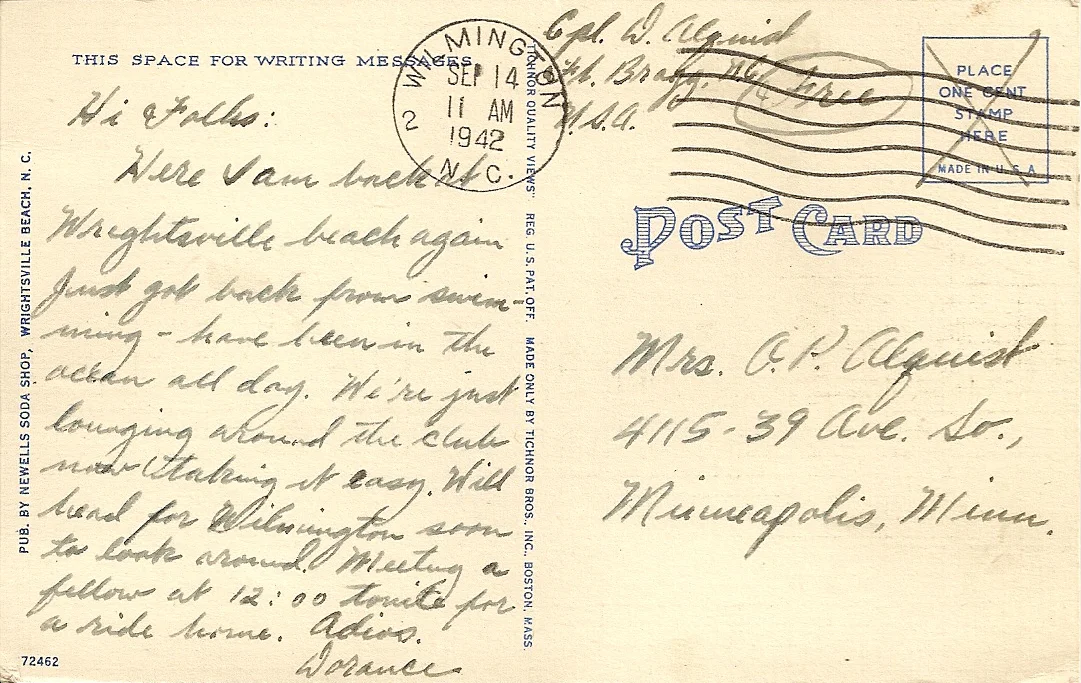 THIS SPACE FOR WRITING MESSAGES
Hi Folks:
Here I am back at
Wrightsville beach again
Just got back from swim-
ming - have been in the
ocean all day. We're just
lounging around the club
now & taking it easy. Will
head for Wilmington soon
to look around. Meeting a
fellow at 12:00 tonite for
a ride home. Adios.
Dorance
72462
PUB. BY NEWELLS SODA SHOP, WRIGHTSVILLE BEACH, N. C.
WILMINGTON
SEP 14
11 AM
1942
2
N. C.
"TICHNOR QUALITY VIEWS" REG. U. S. PAT. OFF. MADE ONLY BY TICHNOR BROS., INC., BOSTON, MASS.
Cpl. D. Alquist
Ft. Bragg, N.C.
U.S.A.
Free
PLACE
ONE CENT
STAMP
HERE
MADE IN U. S. A
POST CARD
Mrs. O. P. Alquist
4115 - 39 Ave. So.,
Minneapolis, Minn.